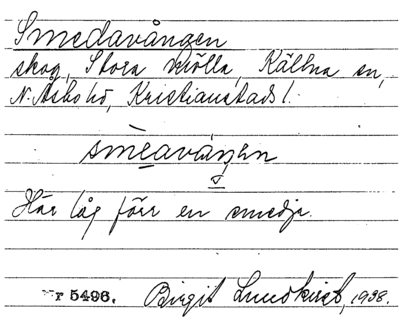 Smedavången
skog, Stora Mölla, Källna sn,
N. Åsbo hd, Kristianstads l.
smèaváŋen
Här låg förr en smedja.
Nr 5496. Birgit Lundkvist, 1938.